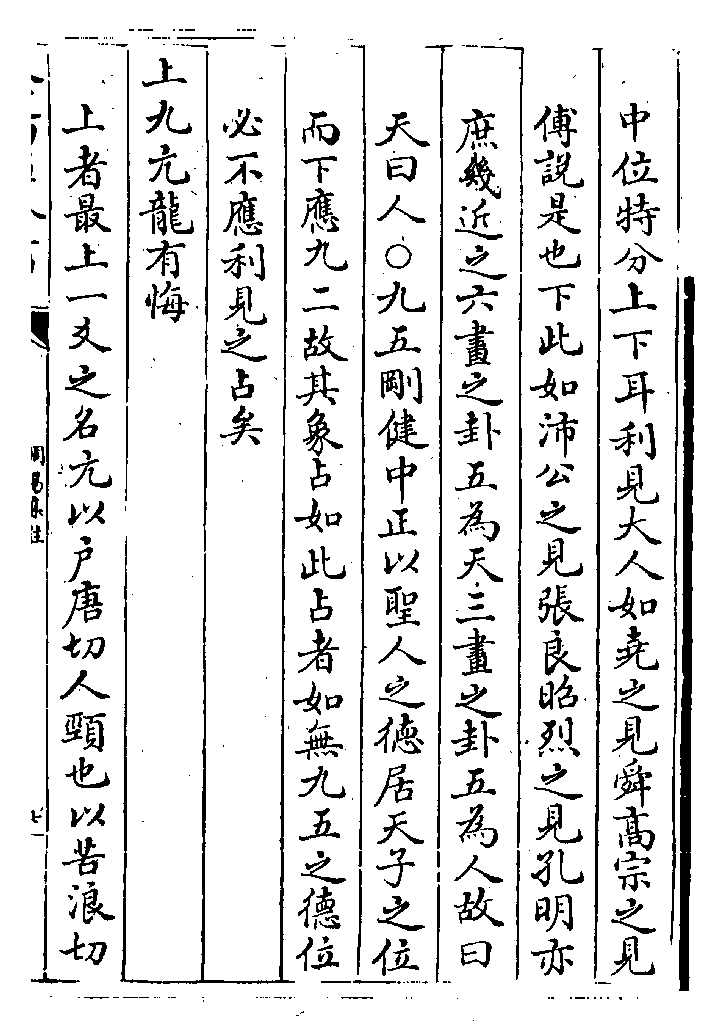 中位特分上下耳利見大人如堯之見舜高宗之見
傅說是也下此如沛公之見張良昭烈之見孔明亦
庶幾近之六畫之卦五為天三畫之卦五為人故曰
天曰人○九五剛健中正以聖人之德居天子之位
而下應九二故其象占如此占者如無九五之德位
必不應利見之占矣
上九亢龍有悔
上者最上一爻之名亢以户唐切人頸也以苦浪切
周易集註